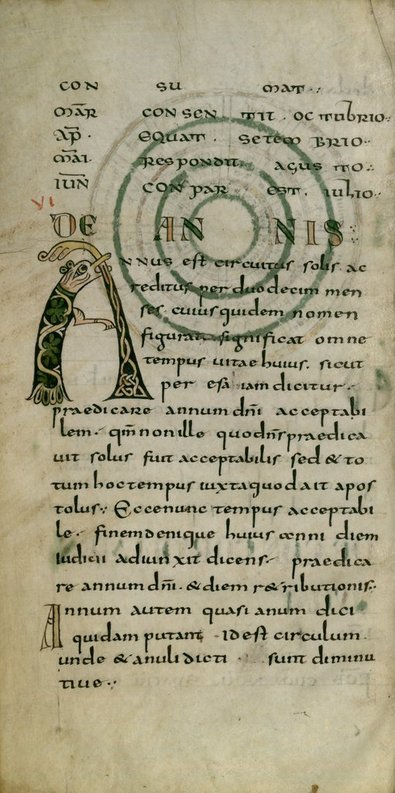 CON SU mat.
mar̄ CONSEN TIT. OCTUbRIO.
ap̄. EQUAT. SETEMBRIO.
mai. RESPONDIT AGUSTO.
IUN̄ CONPAR EST. IULIO.
VI
DE ANNIS
ANNUS est circuitus solis ac
reditus per duodecim men
ses. cuius quidem nomen
figurat. significat omne
tempus vitae huius. sicut
per esā iam dicitur.
praedicare annum dn̄i acceptabi
lem. qm̄ non ille quo dn̄s praedica
uit solus fuit acceptabilis sed & to
tum hoc tempus iuxta quod ait apos
tolus. Ecce nunc tempus acceptabi
le. finem denique huius anni diem
iudicii adiunxit dicens. praedica
re annum dn̄i. & diem r&ributionis.
Annum autem quasi anum dici
quidam putant. Id est circulum
unde & anuli dicti sunt diminu
tiue.